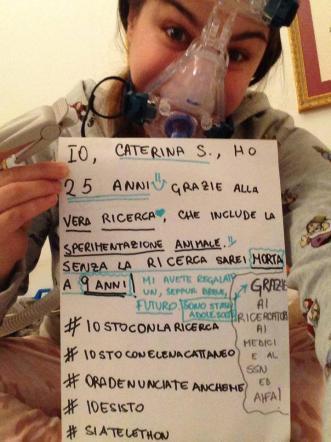 IO, CATERINA S., HO
25 ANNI!! GRAZIE ALLA
VERA RICERCA, CHE INCLUDE LA
SPERIMENTAZIONE ANIMALE.!!
SENZA LA RICERCA SAREI MORTA
A 9 ANNI! MI AVETE REGALATO
UN, SEPPUR BREVE,
FUTURO. SONO STATA
ADOLESCENTE
GRAZIE
AI
RICERCATORI
AI
MEDICI
E AL
SSN
ED
AIFA!
# IOSTOCONLARICERCA
# IOSTOCONELENACATTANEO
# ORADENUNCIATEANCHEME
# IOESISTO
# SIATELETHON